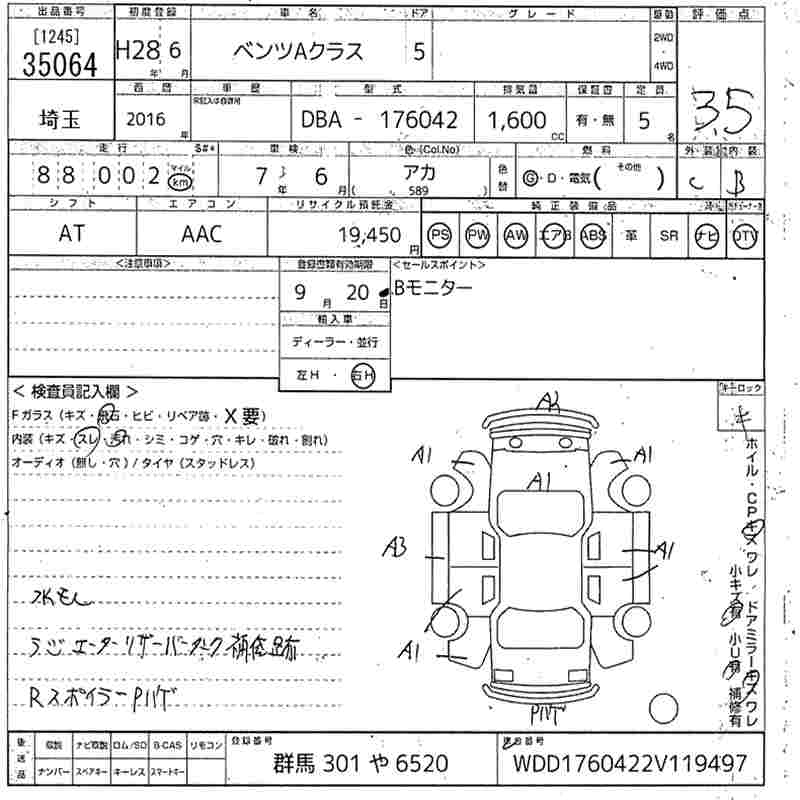 出品番号 初度登録 車名 ドア グレード 駆動 評価点
[1245] 2WD
35064 H28 6 ベンツAクラス 5
年 月 4WD
西暦 車歴 型式 排気量 保証書 定員
埼玉 2016 DBA - 176042 1,600 有・無 5 3.5
年 CC 名
走行 車検 色(Col.No) 燃料 外装 内装
88002 マイル km 7年 6月 アカ 色替 G・D・電気( その他 ) C B
( 589 )
シフト エアコン リサイクル預託金 純正装備品
AT AAC 19,450円 PS PW AW エアB ABS 革 SR ナビ TV
<注意事項> 登録書類有効期限 <セールスポイント>
9月 20日 Bモニター
輸入車
ディーラー・並行
左H ・ 右H
<検査員記入欄> キーロック
Fガラス(キズ・飛石・ヒビ・リペア跡・X要) A2 キ
内装(キズ・スレ・汚れ・シミ・コゲ・穴・キレ・破れ・割れ)
オーディオ(無し・穴)/タイヤ(スタッドレス)
A1 A1
A1
A3 A1
水もれ
ラジエーターリザーバータンク補修跡
A1
RスポイラーPハゲ
Pハゲ
ホイル・CPキズワレ ドアミラーキズワレ
小キズ有 小U有 補修有
後送品 取説 ナビ取説 ロム/SD B-CAS リモコン 登録番号
ナンバー スペアキー キーレス スマートキー 群馬 301 や 6520 WDD1760422V119497